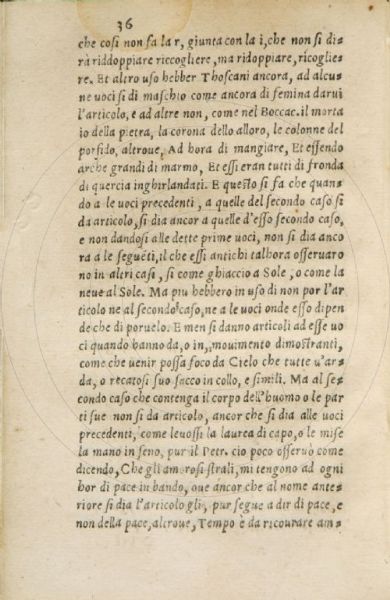 36
che cosi non fa la r, giunta con la i, che non si di=
rà riddoppiare riccogliere, ma ridoppiare, ricoglie=
re. Et altro uso hebber Thoscani ancora, ad alcu=
ne uoci si di maschio come ancora di femina darui
l'articolo, e ad altre non, come nel Boccac. il morta
io della pietra, la corona dello alloro, le colonne del
porfido, altroue, Ad hora di mangiare, Et essendo
arche grandi di marmo, Et essi eran tutti di fronda
di quercia inghirlandati. E questo si fa che quan=
do a le uoci precedenti, a quelle del secondo caso si
da articolo, si dia ancor a quelle d'esso secondo caso,
e non dandosi alle dette prime uoci, non si dia anco
ra a le seguẽti, il che essi antichi talhora osseruaro
no in altri casi, si come ghiaccio a Sole, o come la
neue al Sole. Ma piu hebbero in uso di non por l'ar
ticolo ne al secondo caso, ne a le uoci onde esso dipen
de che di poruelo. E men si danno articoli ad esse uo
ci quando hanno da, o in, mouimento dimostranti,
come che uenir possa foco da Cielo che tutte u'ar=
da, o recatosi suo sacco in collo, e simili. Ma al se=
condo caso che contenga il corpo dell'huomo o le par
ti sue non si da articolo, ancor che si dia alle uoci
precedenti, come leuossi la laurea di capo, o le mise
la mano in seno, pur il Petr. cio poco osseruò come
dicendo, Che gli amorosi strali, mi tengono ad ogni
hor di pace in bando, oue ancor che al nome ante=
riore si dia l'articolo gli, pur segue a dir di pace, e
non della pace, altroue, Tempo è da ricourare am=